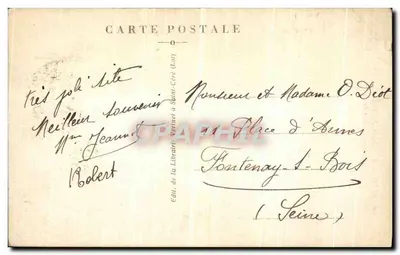 CARTE POSTALE
très joli site
Meilleur souvenir
Mme Jeannot
Robert
Edit. de la Librairie Vertuel à Saint-Céré (Lot)
Monsieur et Madame O. Diot
Place d'Armes
Fontenay-s-Bois
(Seine)